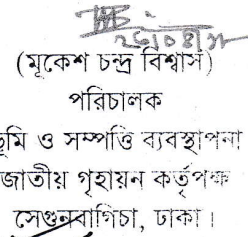 (মূকেশ চন্দ্র বিশ্বাস)
পরিচালক
ভূমি ও সম্পত্তি ব্যবস্থাপনা
জাতীয় গৃহায়ন কর্তৃপক্ষ
সেগুনবাগিচা, ঢাকা।